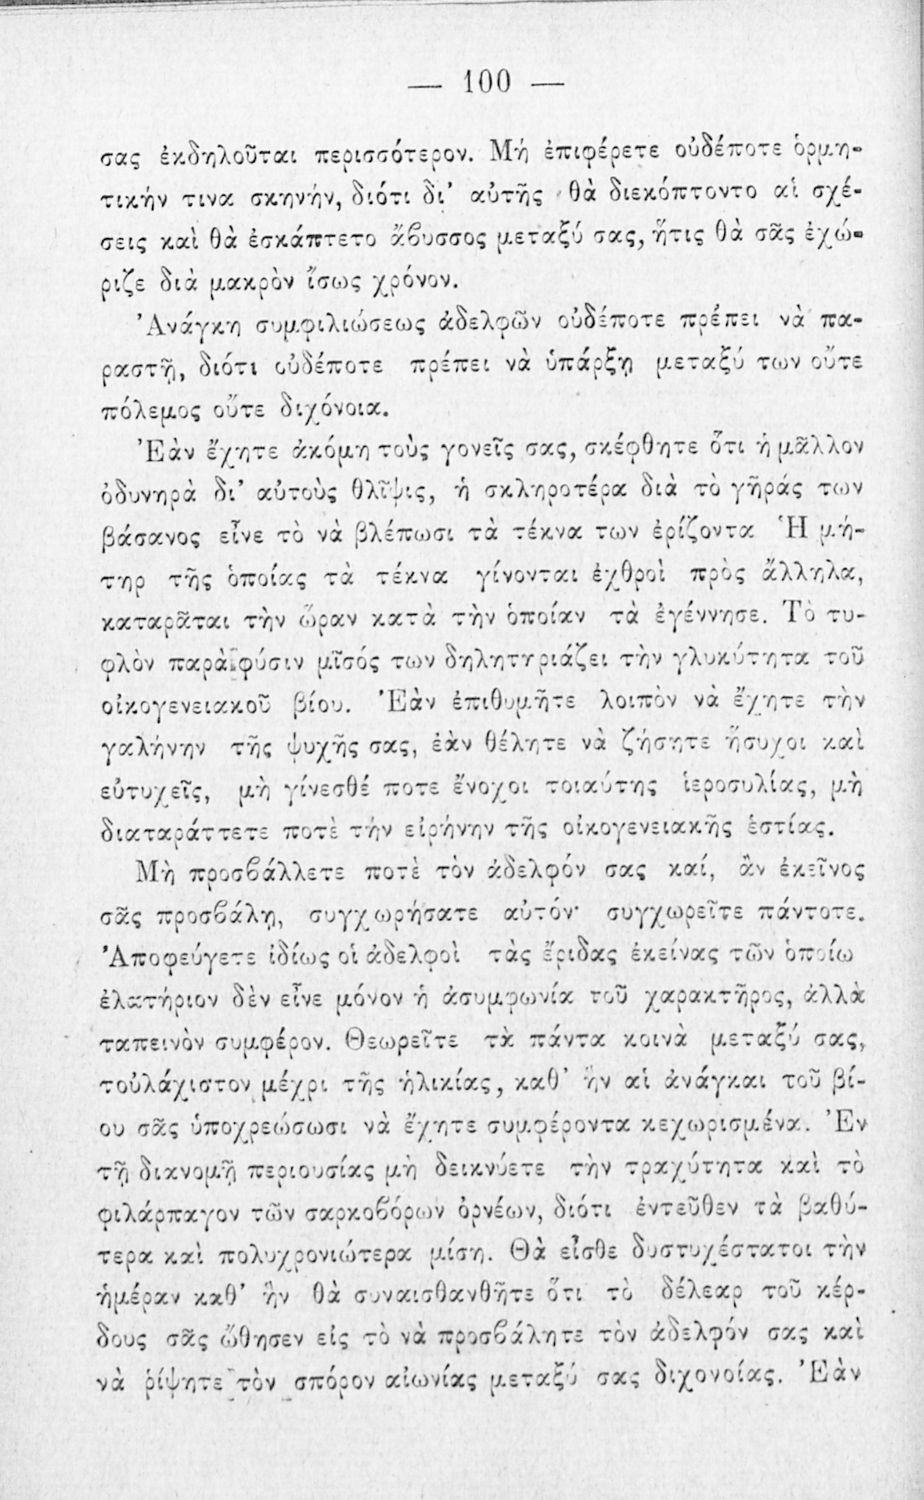 — 100 —
σας ἐκδηλοῦται περισσότερον. Μή ἐπιφέρετε οὐδέποτε ὁρμη-
τικήν τινα σκηνήν, διότι δι’ αὐτῆς θὰ διεκόπτοντο αἱ σχέ-
σεις καὶ θὰ ἐσκάπτετο ἄβυσσος μεταξύ σας, ἥτις θὰ σᾶς ἐχώ-
ριζε διὰ μακρὸν ἴσως χρόνον.
Ἀνάγκη συμφιλιώσεως ἀδελφῶν οὐδέποτε πρέπει νὰ πα-
ραστῇ, διότι οὐδέποτε πρέπει νὰ ὑπάρξῃ μεταξύ των οὔτε
πόλεμος οὔτε διχόνοια.
Ἐὰν ἔχητε ἀκόμη τοὺς γονεῖς σας, σκέφθητε ὅτι ἡ μᾶλλον
ὀδυνηρὰ δι’ αὐτοὺς θλῖψις, ἡ σκληροτέρα διὰ τὸ γῆράς των
βάσανος εἶνε τὸ νὰ βλέπωσι τὰ τέκνα των ἐρίζοντα Ἡ μή-
τηρ τῆς ὁποίας τὰ τέκνα γίνονται ἐχθροὶ πρὸς ἄλληλα,
καταρᾶται τὴν ὥραν κατὰ τὴν ὁποίαν τὰ ἐγέννησε. Τὸ τυ-
φλὸν παρὰ φύσιν μῖσός των δηλητηριάζει τὴν γλυκύτητα τοῦ
οἰκογενειακοῦ βίου. Ἐὰν ἐπιθυμῆτε λοιπὸν νὰ ἔχητε τὴν
γαλήνην τῆς ψυχῆς σας, ἐὰν θέλητε νὰ ζήσητε ἥσυχοι καὶ
εὐτυχεῖς, μὴ γίνεσθέ ποτε ἔνοχοι τοιαύτης ἱεροσυλίας, μὴ
διαταράττετε ποτὲ τὴν εἰρήνην τῆς οἰκογενειακῆς ἑστίας.
Μὴ προσβάλλετε ποτὲ τὸν ἀδελφόν σας καί, ἂν ἐκεῖνος
σᾶς προσβάλῃ, συγχωρήσατε αὐτόν· συγχωρεῖτε πάντοτε.
Ἀποφεύγετε ἰδίως οἱ ἀδελφοὶ τὰς ἔριδας ἐκείνας τῶν ὁποίω
ἐλατήριον δὲν εἶνε μόνον ἡ ἀσυμφωνία τοῦ χαρακτῆρος, ἀλλὰ
ταπεινὸν συμφέρον. Θεωρεῖτε τὰ πάντα κοινὰ μεταξύ σας,
τοὐλάχιστον μέχρι τῆς ἡλικίας, καθ’ ἣν αἱ ἀνάγκαι τοῦ βί-
ου σᾶς ὑποχρεώσωσι νὰ ἔχητε συμφέροντα κεχωρισμένα. Ἐν
τῇ διανομῇ περιουσίας μὴ δεικνύετε τὴν τραχύτητα καὶ τὸ
φιλάρπαγον τῶν σαρκοβόρων ὀρνέων, διότι ἐντεῦθεν τὰ βαθύ-
τερα καὶ πολυχρονιώτερα μίση. Θὰ εἶσθε δυστυχέστατοι τὴν
ἡμέραν καθ’ ἣν θὰ συναισθανθῆτε ὅτι τὸ δέλεαρ τοῦ κέρ-
δους σᾶς ὤθησεν εἰς τὸ νὰ προσβάλητε τὸν ἀδελφόν σας καὶ
νὰ ῥίψητε τὸν σπόρον αἰωνίας μεταξύ σας διχονοίας. Ἐὰν